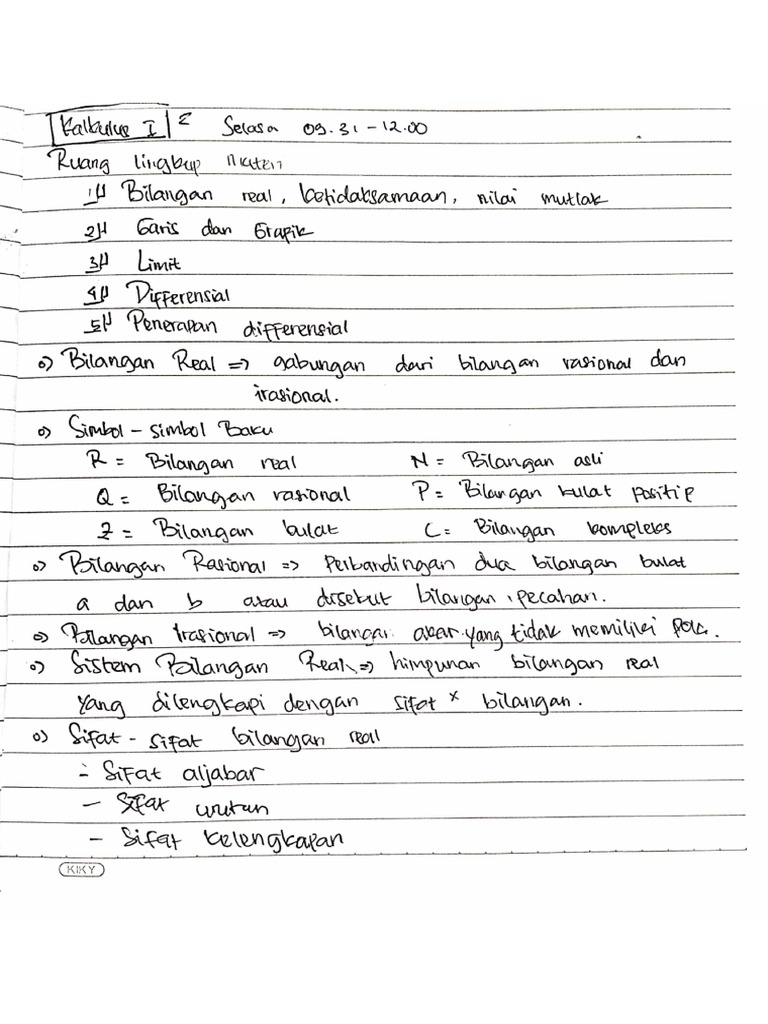 Kalkulus I E Selasa 09.31 - 12.00
Ruang lingkup materi
1) Bilangan real, ketidaksamaan, nilai mutlak
2) Garis dan Grapik
3) Limit
4) Differensial
5) Penerapan differensial
o) Bilangan Real => gabungan dari bilangan rasional dan
irasional.
o) Simbol - simbol Baku
R = Bilangan real N = Bilangan asli
Q = Bilangan rasional P = Bilangan bulat positip
Z = Bilangan bulat C = Bilangan kompleks
o) Bilangan Rasional => Perbandingan dua bilangan bulat
a dan b atau disebut bilangan pecahan.
o) Bilangan Irasional => bilangan akar yang tidak memiliki pola.
o) Sistem Bilangan Real => himpunan bilangan real
yang dilengkapi dengan sifat x bilangan.
o) Sifat - sifat bilangan real
- Sifat aljabar
- Sifat urutan
- Sifat kelengkapan
KIKY